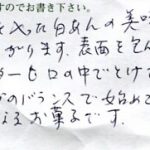 すのでお書き下さい。
を入った白あんの美味
がります。表面を包ん
が一ヒ口の中でとけて
のバランスで始めて
なるお菓子です。